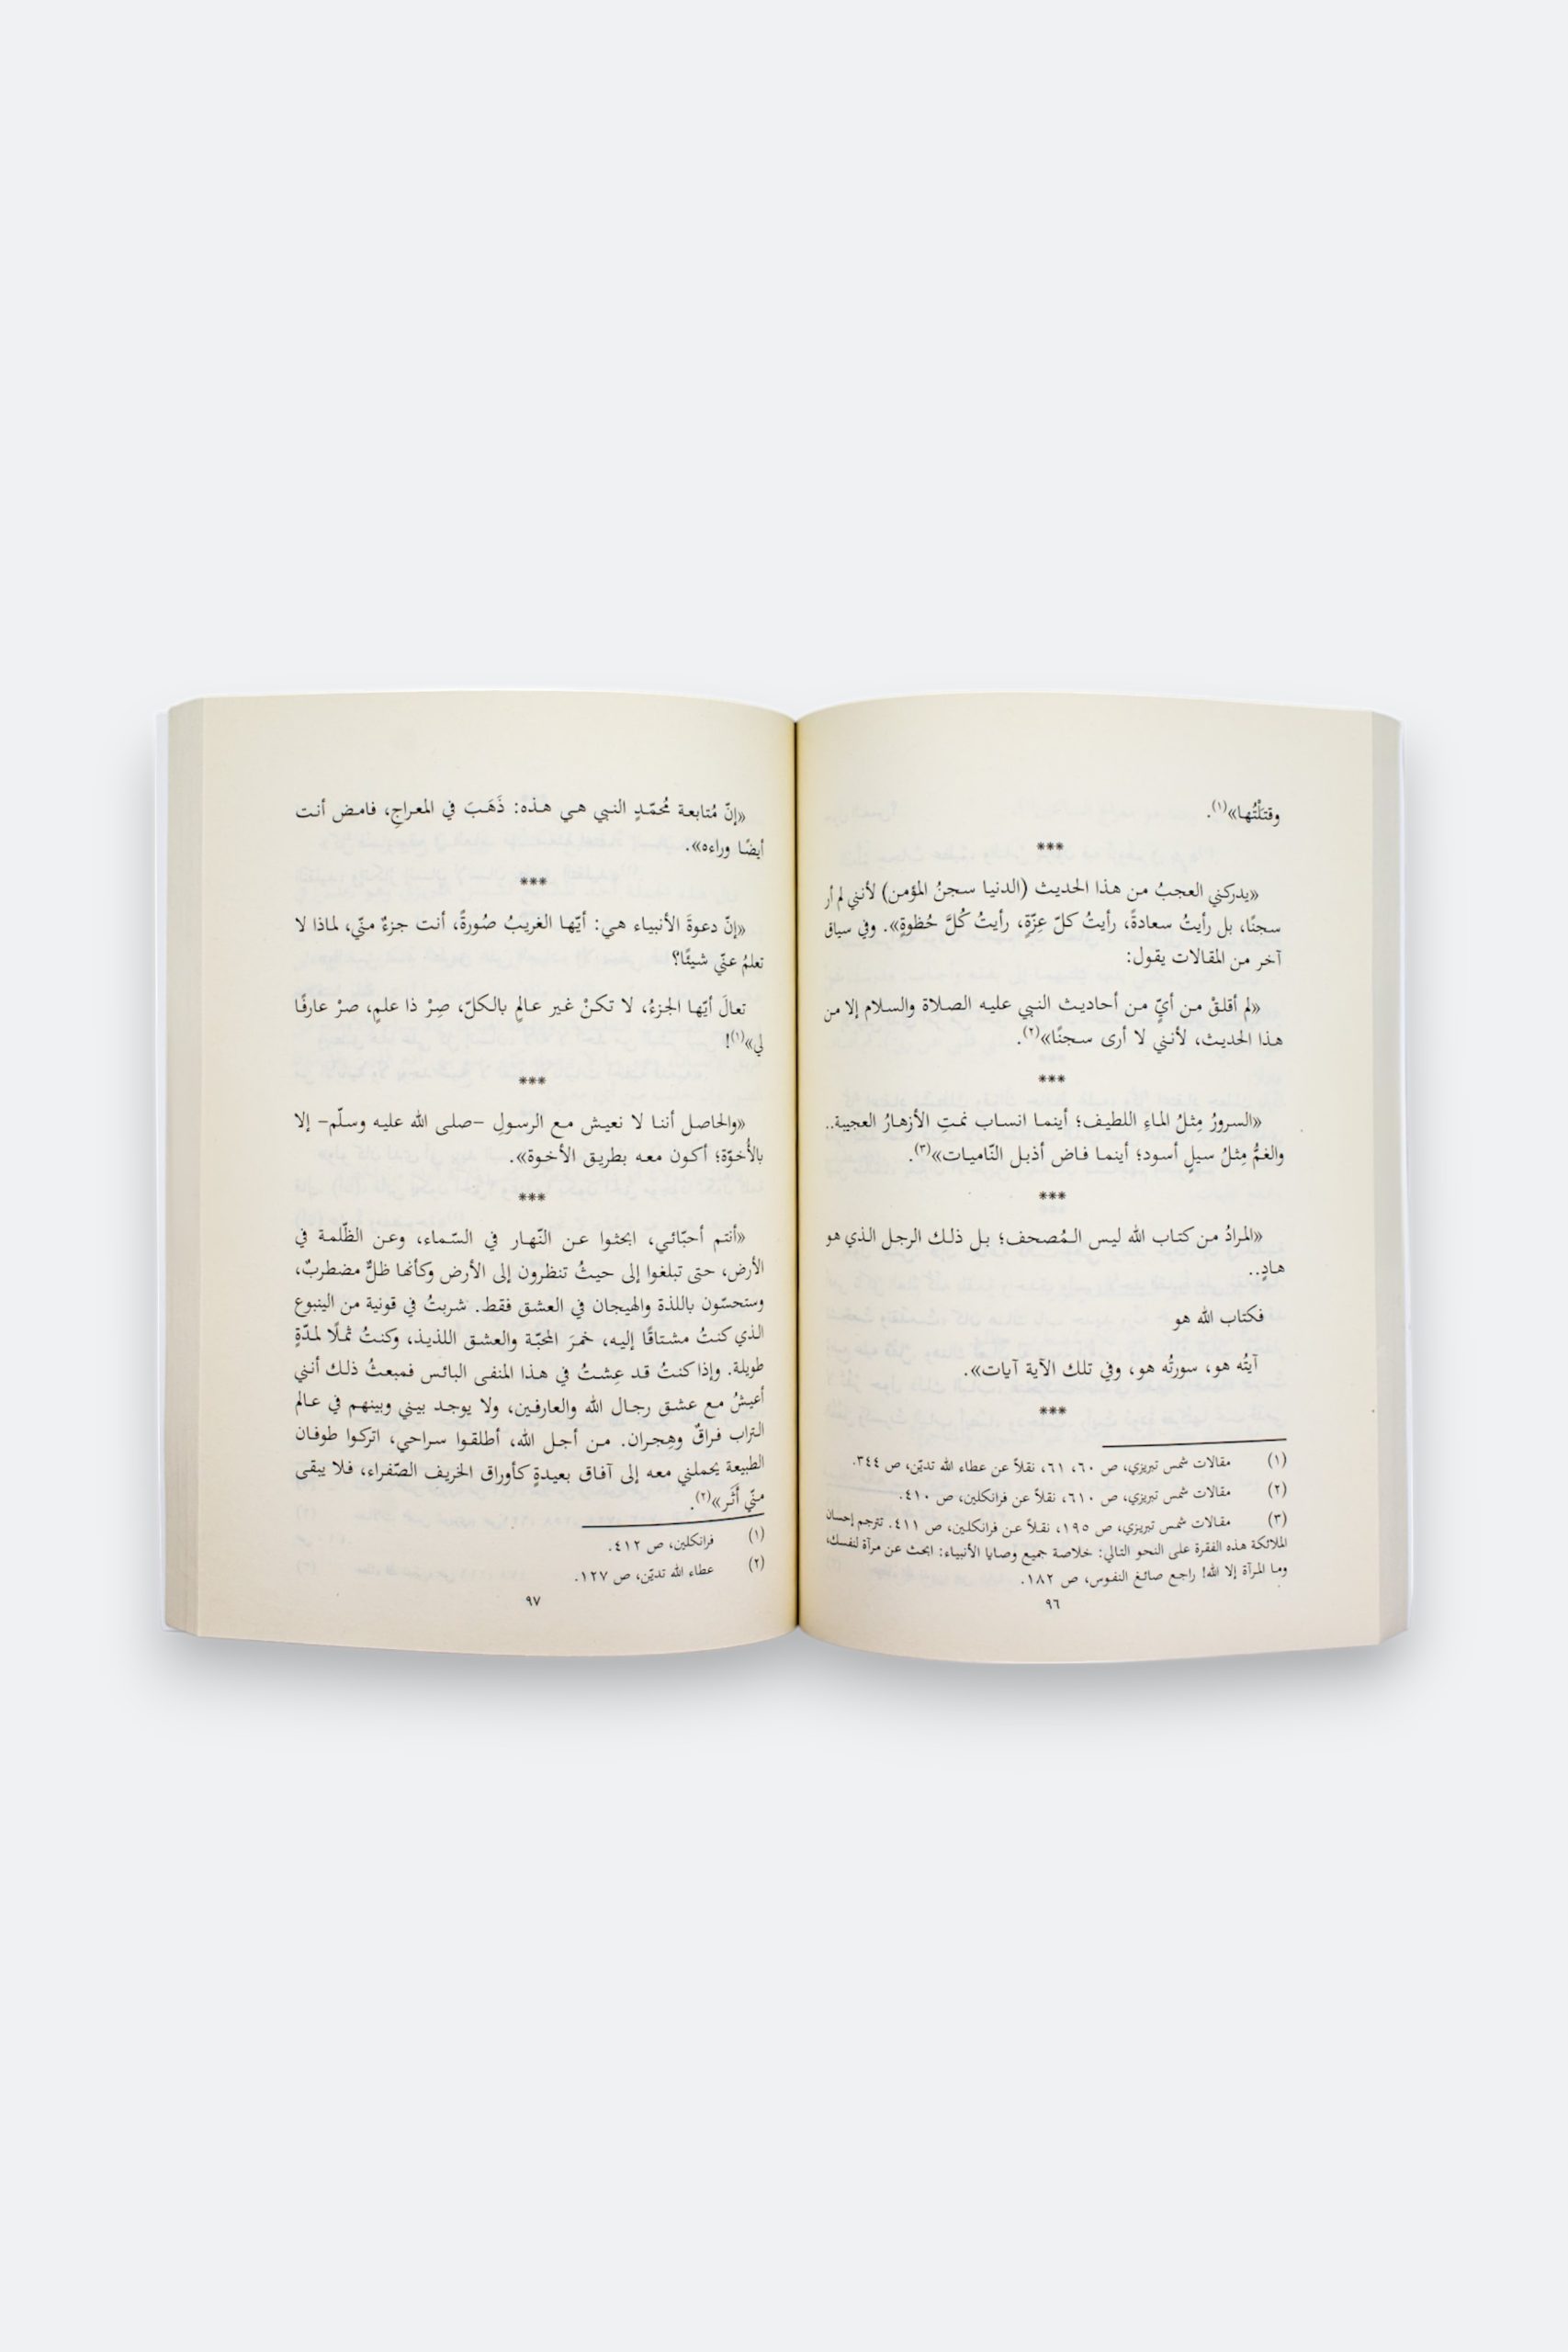 وقتَلْتُها»(١).
***
«يدركني العجبُ من هذا الحديث (الدنيا سجنُ المؤمن) لأنني لم أر
سجنًا، بل رأيتُ سعادةً، رأيتُ كلّ عِزّةٍ، رأيتُ كُلَّ حُظوةٍ». وفي سياق
آخر من المقالات يقول:
«لم أقلقْ من أيٍّ من أحاديث النبي عليه الصلاة والسلام إلا من
هذا الحديث، لأنني لا أرى سجنًا»(٢).
***
«السرورُ مِثلُ الماءِ اللطيف؛ أينما انساب نمتِ الأزهارُ العجيبة..
والغمُّ مِثلُ سيلٍ أسود؛ أينما فاض أذبل النّاميات»(٣).
***
«المرادُ من كتاب الله ليس المُصحف؛ بل ذلك الرجل الذي هو
هادٍ..
فكتاب الله هو
آيتُه هو، سورتُه هو، وفي تلك الآية آيات».
***
(١) مقالات شمس تبريزي، ص ٦٠، ٦١، نقلاً عن عطاء الله تديّن، ص ٣٤٤.
(٢) مقالات شمس تبريزي، ص ٦١٠، نقلاً عن فرانكلين، ص ٤١٠.
(٣) مقالات شمس تبريزي، ص ١٩٥، نقلاً عن فرانكلين، ص ٤١١. تترجم إحسان
الملائكة هذه الفقرة على النحو التالي: خلاصة جميع وصايا الأنبياء: ابحث عن مرآة لنفسك،
وما المرآة إلا الله! راجع صائغ النفوس، ص ١٨٢.
٩٦
«إنّ مُتابعة مُحمّدٍ النبي هي هذه: ذَهَبَ في المعراجِ، فامض أنت
أيضًا وراءه».
***
«إنّ دعوةَ الأنبياء هي: أيّها الغريبُ صُورةً، أنت جزءٌ منّي، لماذا لا
تعلمُ عنّي شيئًا؟
تعالَ أيّها الجزءُ، لا تكنْ غير عالمٍ بالكلّ، صِرْ ذا علمٍ، صرْ عارفًا
لي»(١)!
***
«والحاصل أننا لا نعيش مع الرسولِ -صلى الله عليه وسلّم- إلا
بالأُخوّة؛ أكون معه بطريق الأخوة».
***
«أنتم أحبّائي، ابحثوا عن النّهار في السّماء، وعن الظّلمة في
الأرض، حتى تبلغوا إلى حيثُ تنظرون إلى الأرض وكأنها ظلٌّ مضطربٌ،
وستحسّون باللذة والهيجان في العشق فقط. شربتُ في قونية من الينبوع
الذي كنتُ مشتاقًا إليه، خمرَ المحبّة والعشق اللذيذ، وكنتُ ثملًا لمدّةٍ
طويلة. وإذا كنتُ قد عِشتُ في هذا المنفى البائس فمبعثُ ذلك أنني
أعيشُ مع عشق رجال الله والعارفين، ولا يوجد بيني وبينهم في عالم
التراب فراقٌ وهِجران. من أجل الله، أطلقوا سراحي، اتركوا طوفان
الطبيعة يحملني معه إلى آفاق بعيدةٍ كأوراق الخريف الصّفراء، فلا يبقى
منّي أَثَر»(٢).
(١) فرانكلين، ص ٤١٢.
(٢) عطاء الله تديّن، ص ١٢٧.
٩٧